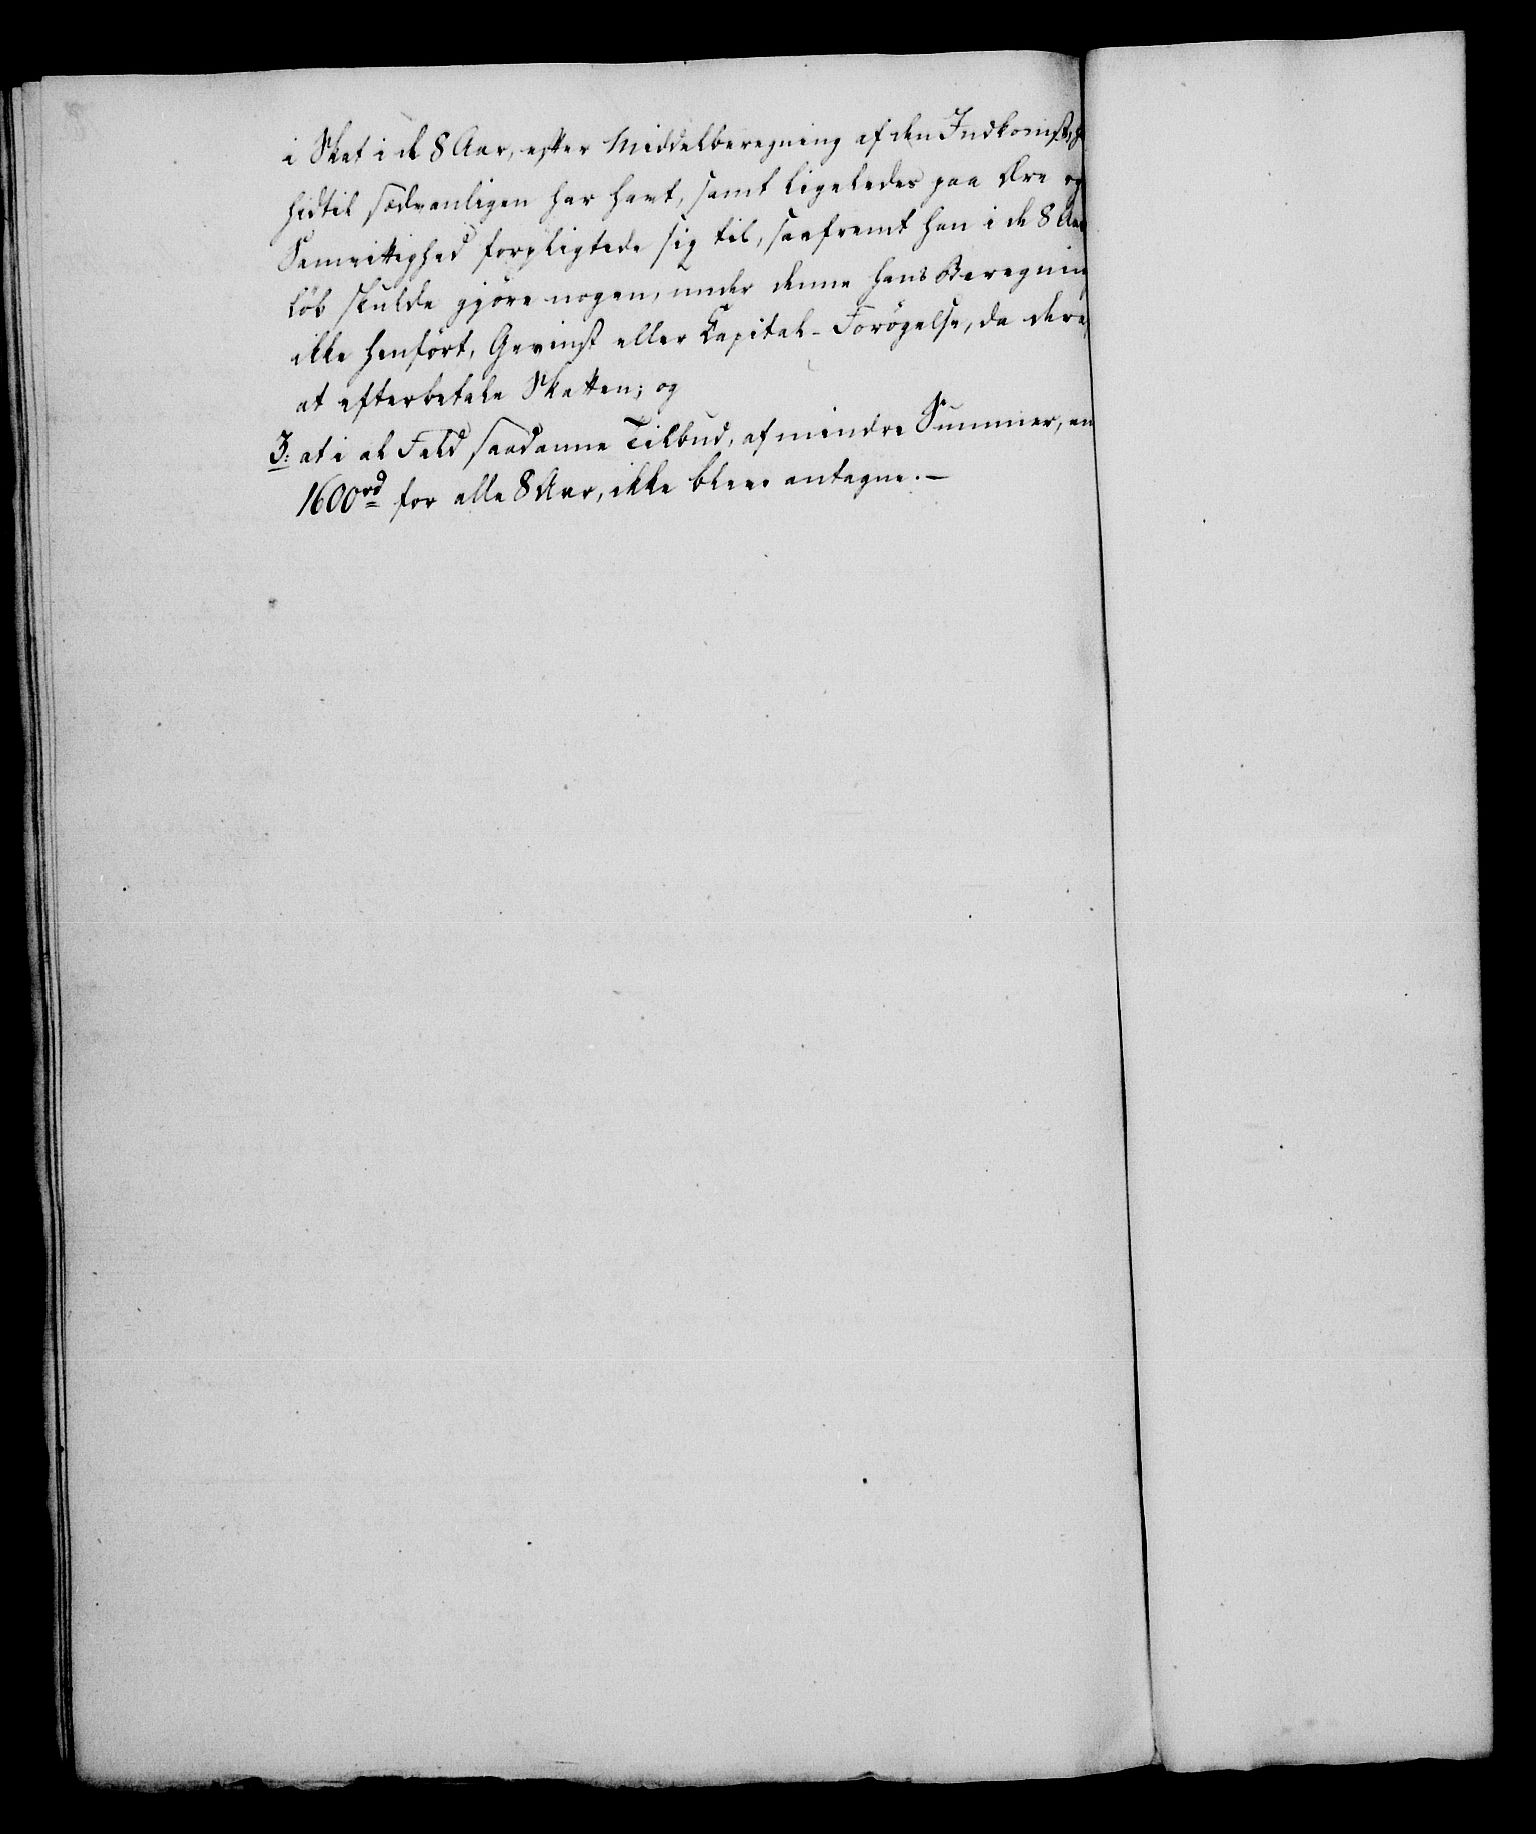 i Skat i de 8 Aar, efter Middelberegning af den Indkomst, h
hidtil sædvanligen har havt, samt ligeledes paa Ære og
Samvittighed forpligtede sig til, saafremt han i de 8 Aar
løb skulde gjøre nogen, under denne hans Beregnin
ikke henført, Gevinst eller Capital-Forøgelse, da dera
at efterbetale Skatten; og
3: at i al Fald saadanne Tilbud, af mindre Summer, en
1600rd for alle 8 Aar, ikke bleve antagne.-